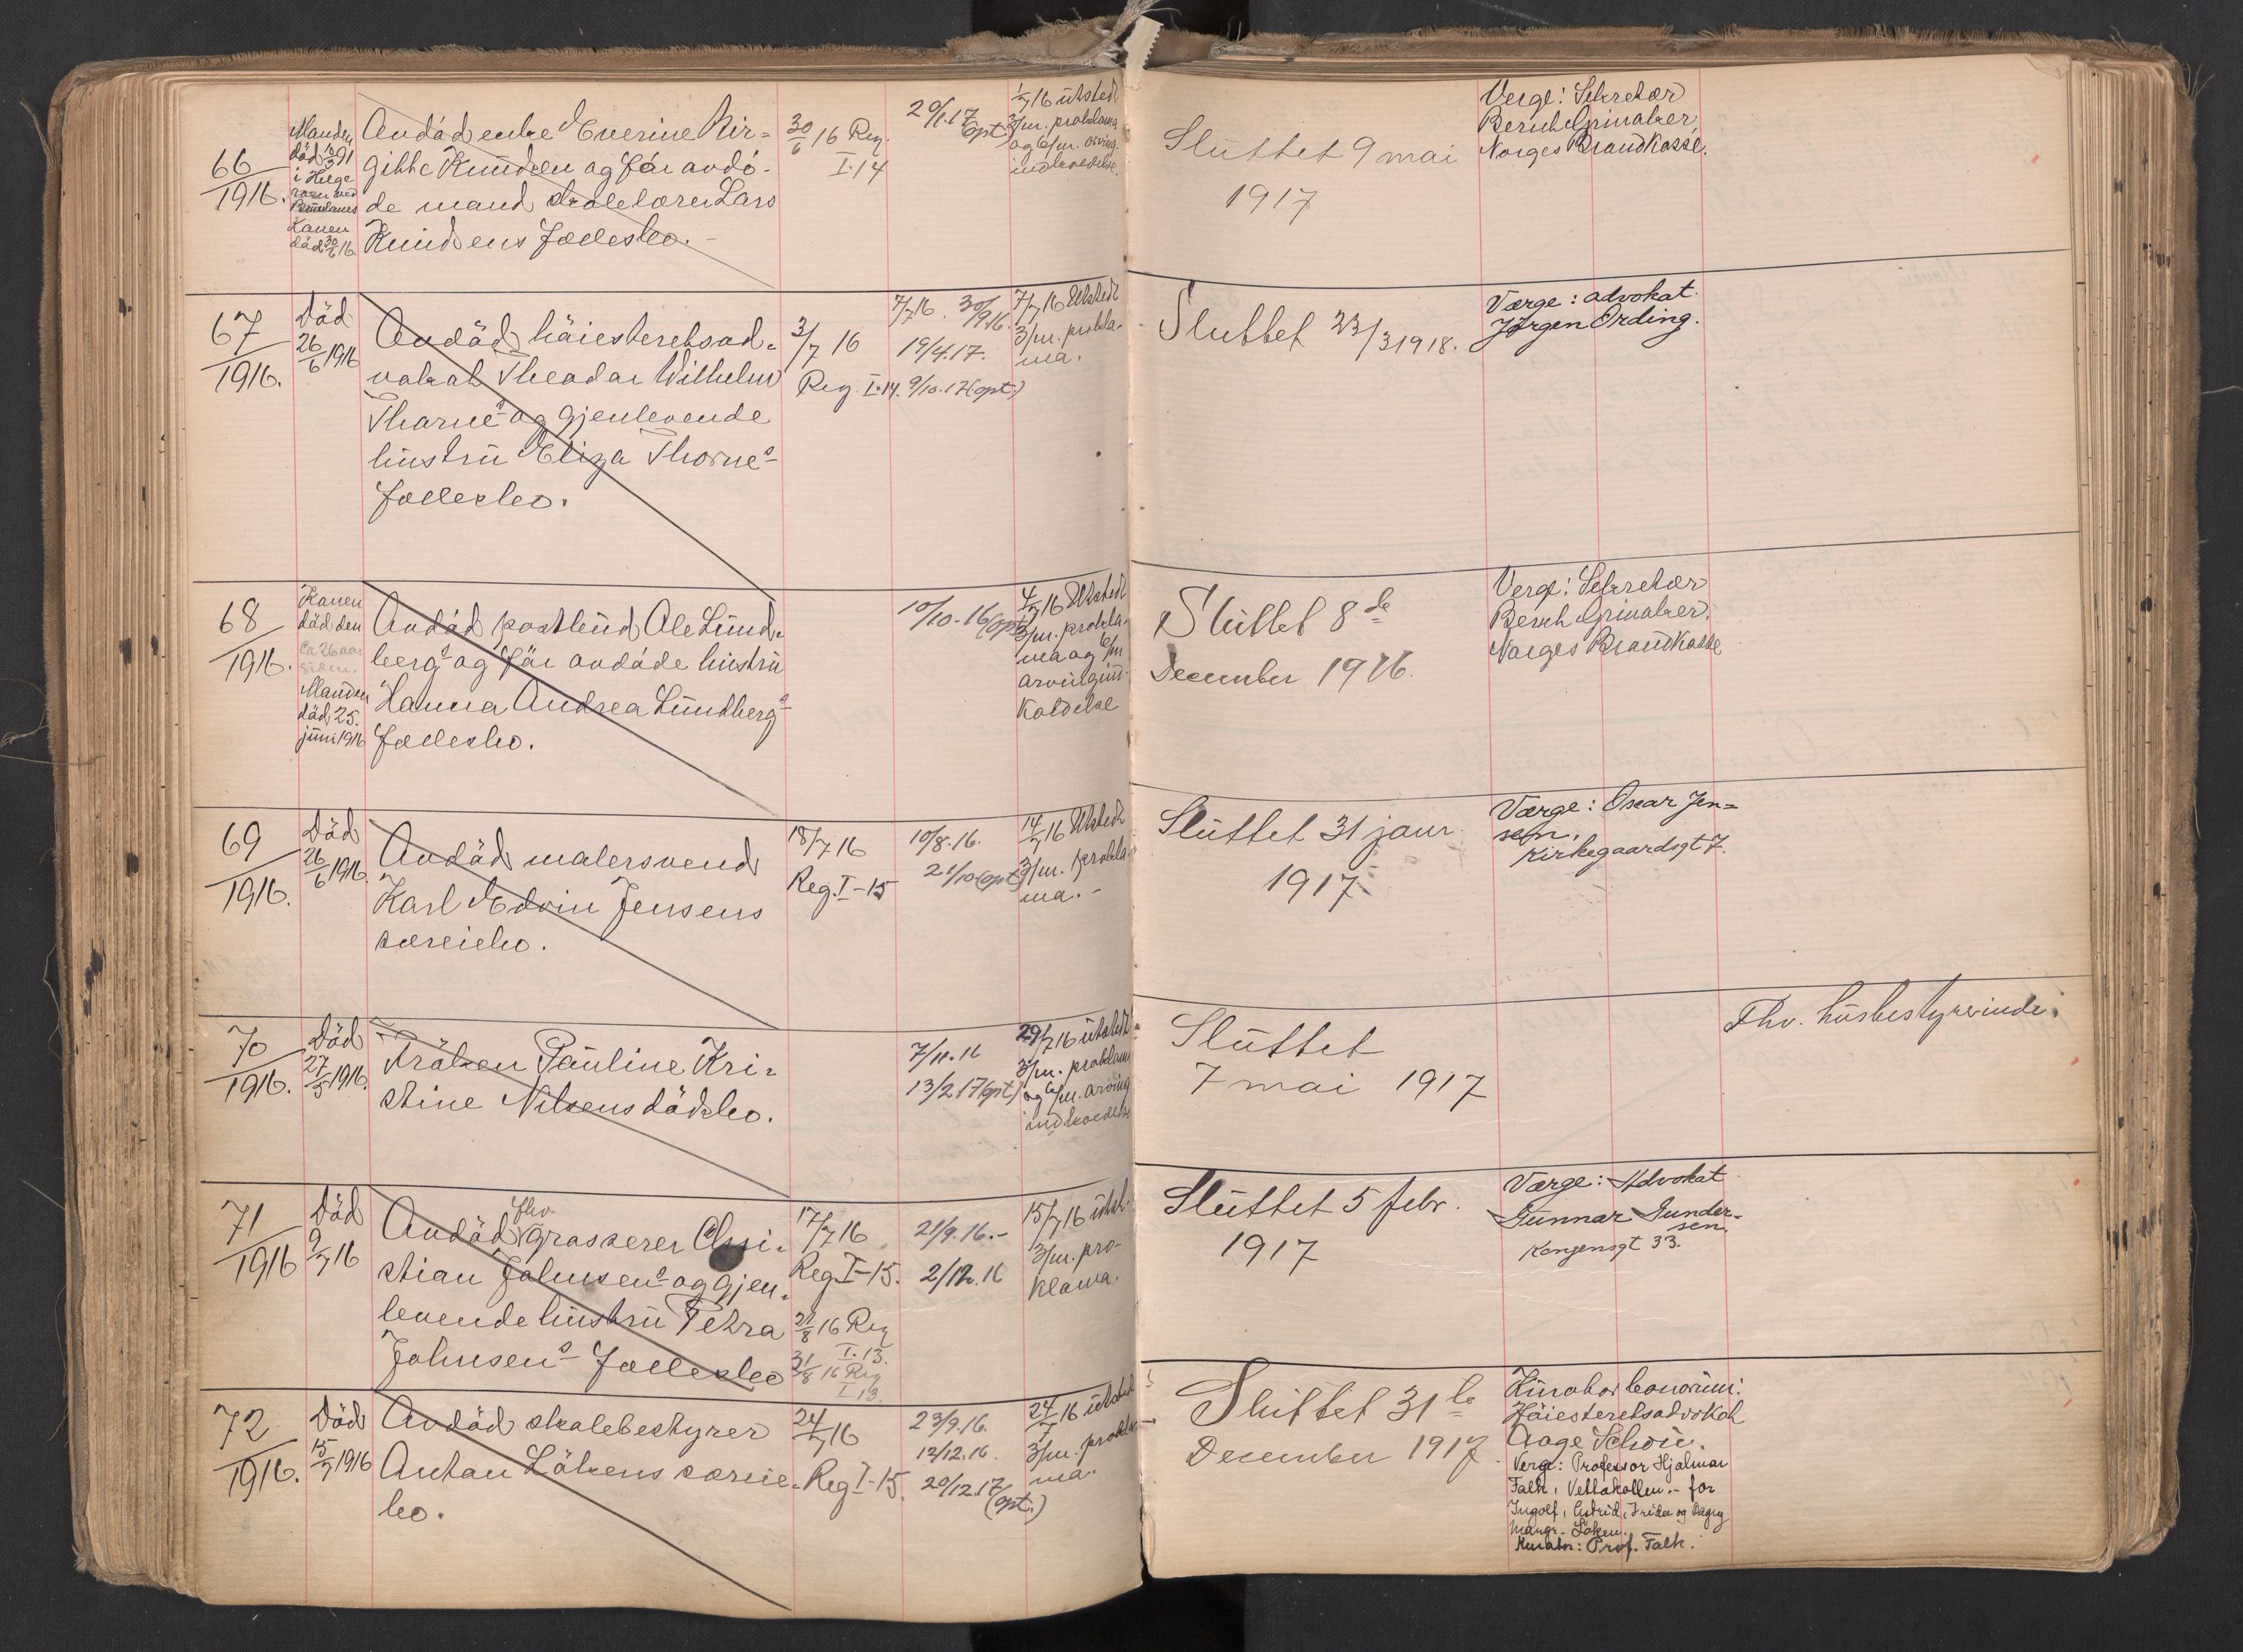 66
1916.
Manden
död 10/3 91
i Helge
Konen
död 30/6 16.
Avdöd enke Everine Bir=
gitte Knudsen og før avdö-
de mand skolelærer Lars
Knudsens fællesbo.-
30/6 16 Reg.
I.14
20/1.17
(opt)
1/7 16 utstedt
3/m. proklama
og 6/m. arving-
indkaldelse.
Sluttet 9 mai
1917
Verge: Sekretær
Bernh Grinaker
Norges Brandkasse.
67
1916.
Död
26/6 1916
Avdöd höiesteretsad-
vokat Theodor Wilhelm
Thorne's og gjenlevende
hustru Eliza Thorne's
fællesbo.
3/7 16
Reg. I.14.
7/7 16. 30/9 16.
19/4.17.
9/10.17 (opt.)
7/7 16 Utstedt
3/m. prokla-
ma.
Sluttet 23/3 1918.
Værge: advokat
Jørgen Ording.
68
1916.
Konen
död den
ca 26 aar
siden.
Manden
död 25.
juni 1916
Avdöd postbud Ole Lund-
berg's og før avdöde hustru
Hanna Andrea Lundberg's
fællesbo.
10/10-16 (opt)
4/7 16 Utstedt
3/m. prokla-
ma og 6/m
arvingin-
kaldelse
Sluttet 8de
December 1916.
Verge: Sekretær
Bernh Grinaker
Norges Brandkasse
69
1916.
Död
26/6 1916.
Avdöd malersvend
Karl Edvin Jensens
særeiebo.
18/7 16
Reg. I-15
10/8.16.
21/10 (opt)
14/7 16 Utstedt
3/m. prokla-
ma.-
Sluttet 31 janr.
1917.
Værge: Oscar Jen=
sen.
Kirkegaardsgt 7.
70
1916.
Död
27/5 1916.
Fröken Pauline Kri-
stine Nilsens dödsbo.
7/11.16
13/2.17 (opt)
29/7 16 utstedt
3/m. proklama
og 6/m. arving
indkaldelse
Sluttet
7 mai 1917
Fhv. husbestyrerinde.
71
1916
Död
9/7 16
Avdöd fhv. grosserer Chri-
stian Johnsen's og gjen-
levende hustru Petra
Johnsen's fællesbo
17/7 16
Reg. I-15.
21/8 16 Reg
I.13.
31/8 16 Reg
I 13.
21/9.16.-
2/12.16
15/7 16 utst.
3/m. pro-
klama.
Sluttet 5 febr.
1917
Værge: Advokat
Gunnar Gunder-
sen.
Kongensgt 33.
72
1916.
Död
15/7 1916
Avdöd skolebestyrer
Anton Lökens særeie-
bo.
24/7 16
Reg I-15.
23/9.16.
12/12.16.
20/12.17
(opt.)
24/7 16 utstedt
3/m. prokla-
ma.
Sluttet 31te
December 1917.
Kurator bonorum:
Höiesteretsadvokat
Aage Schou.
Verge: Professor Hjalmar
Falk, Vettakollen.- for
Ingolf, Astrid, Frida og Dagny
Løken.
Kurator: Prof. Falk.